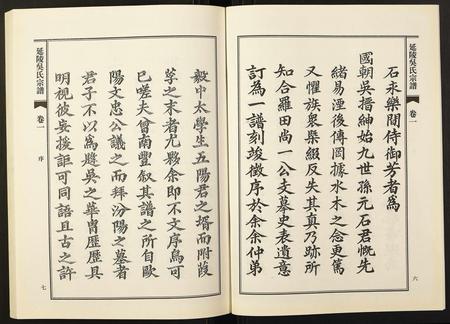 延陵吳氏宗譜
卷一
六
石永樂間侍御芳者為
國朝吳搢紳始九世孫元石君慨先
緒易湮後傳罔據水木之念更篤
又懼族衆槩綴反失其真乃跡所
知合羅田尚一公文墓史表遺意
訂為一譜刻竣徵序於余余仲弟
毅中太學生五陽君之婿而附葭
莩之末者尤夥余即不文序烏可
已嗟夫曾南豐叙其譜之所自歐
陽文忠公議之而拜汾陽之墓者
君子不以為嗤吳之華冑歷歷具
明視彼妄援詎可同語且古之許
延陵吳氏宗譜
卷一
序
七